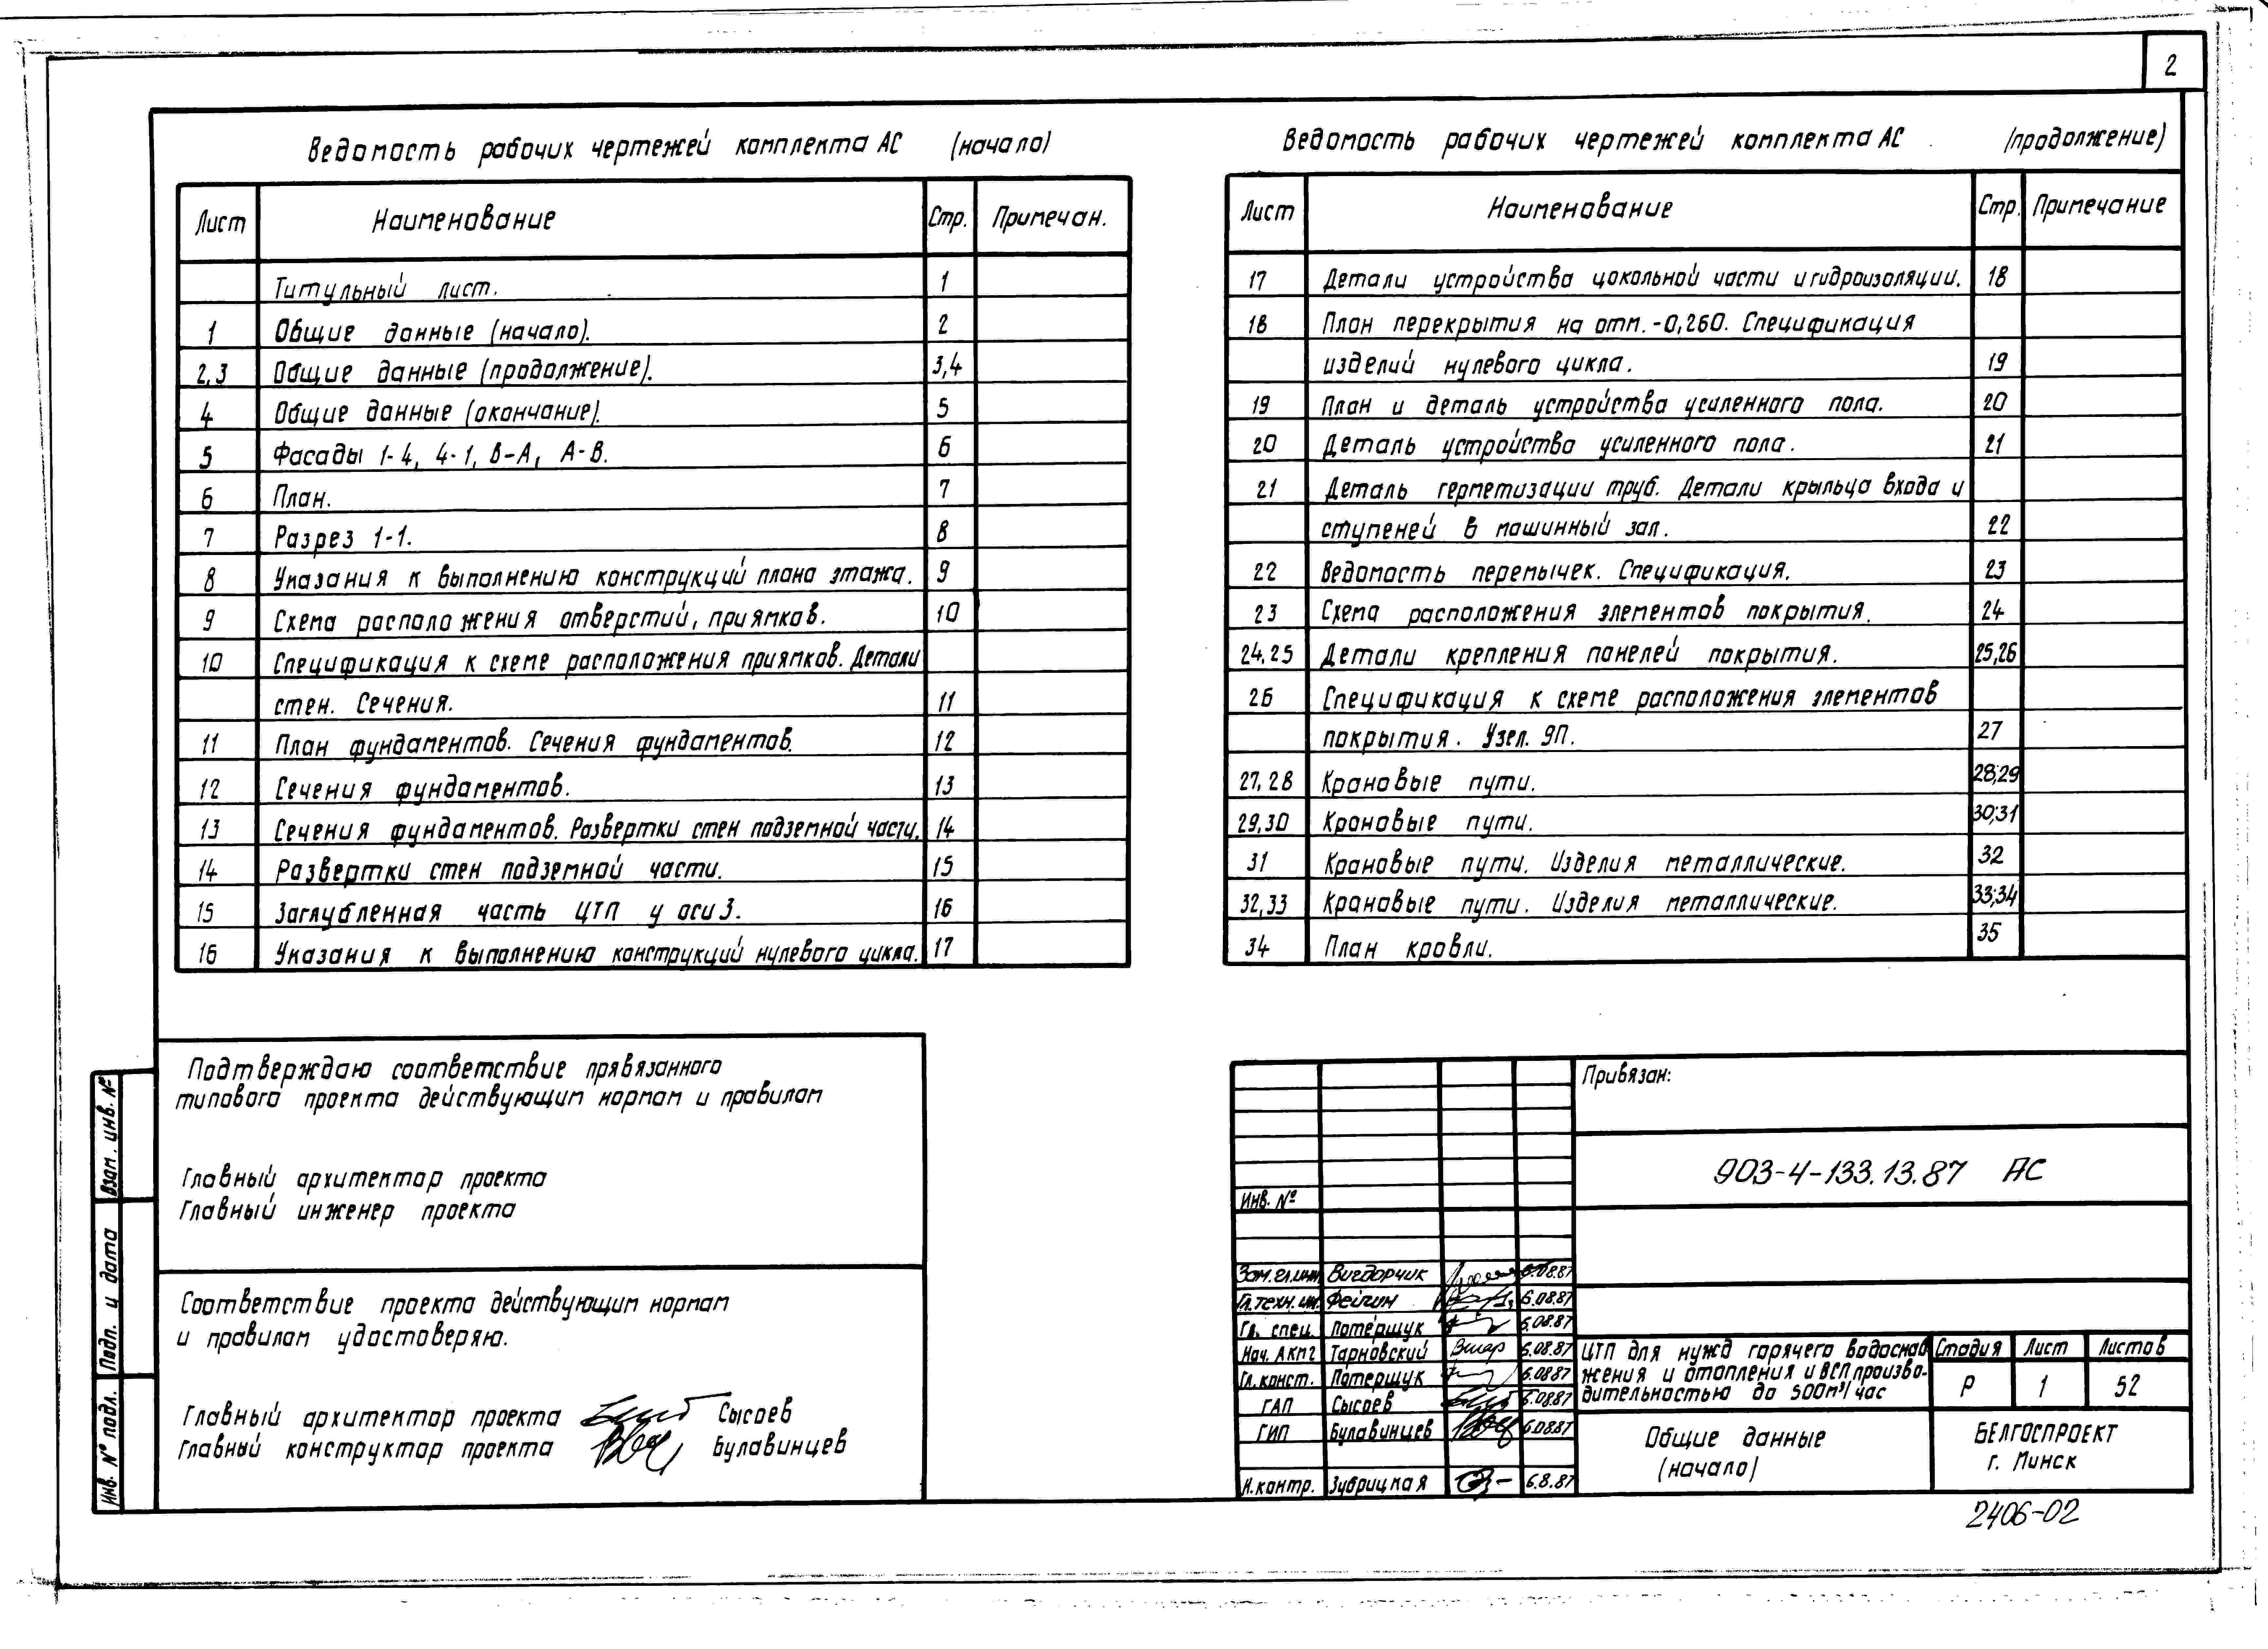 2
Ведомость рабочих чертежей комплекта АС (начало)
Лист Наименование Стр. Примечан.
Титульный лист. 1
1 Общие данные (начало). 2
2,3 Общие данные (продолжение). 3,4
4 Общие данные (окончание). 5
5 Фасады 1-4, 4-1, В-А, А-В. 6
6 План. 7
7 Разрез 1-1. 8
8 Указания к выполнению конструкций плана этажа. 9
9 Схема расположения отверстий, приямков. 10
10 Спецификация к схеме расположения приямков. Детали
стен. Сечения. 11
11 План фундаментов. Сечения фундаментов. 12
12 Сечения фундаментов. 13
13 Сечения фундаментов. Развертки стен подземной части. 14
14 Развертки стен подземной части. 15
15 Заглубленная часть ЦТП у оси 3. 16
16 Указания к выполнению конструкций нулевого цикла. 17
Ведомость рабочих чертежей комплекта АС (продолжение)
Лист Наименование Стр. Примечание
17 Детали устройства цокольной части и гидроизоляции. 18
18 План перекрытия на отм. -0,260. Спецификация
изделий нулевого цикла. 19
19 План и деталь устройства усиленного пола. 20
20 Деталь устройства усиленного пола. 21
21 Деталь герметизации труб. Детали крыльца входа и
ступеней в машинный зал. 22
22 Ведомость перемычек. Спецификация. 23
23 Схема расположения элементов покрытия. 24
24,25 Детали крепления панелей покрытия. 25,26
26 Спецификация к схеме расположения элементов
покрытия. Узел. 9П. 27
27,28 Крановые пути. 28;29
29,30 Крановые пути. 30;31
31 Крановые пути. Изделия металлические. 32
32,33 Крановые пути. Изделия металлические. 33;34
34 План кровли. 35
Подтверждаю соответствие прявязанного
типового проекта действующим нормам и правилам
Главный архитектор проекта
Главный инженер проекта
Соответствие проекта действующим нормам
и правилам удостоверяю.
Главный архитектор проекта Сысоев
Главный конструктор проекта Булавинцев
Взам. инв. №
Подп. и дата
Инв. № подл.
Привязан:
903-4-133.13.87 АС
Инв. №
Зам.гл.инж Вигдорчик 6.08.87
Гл.техн.ин. Фейгин 6.08.87
Гл. спец. Потерщук 6.08.87
Нач. АКМ2 Тарновский 6.08.87
Гл.конст. Потерщук 6.08.87
ГАП Сысоев 6.08.87
ГИП Булавинцев 6.08.87
Н.контр. Зубрицкая 6.8.87
ЦТП для нужд горячего водоснаб
жения и отопления и ВСП произво-
дительностью до 500м³/час
Стадия Лист Листов
Р 1 52
Общие данные
(начало)
БЕЛГОСПРОЕКТ
г. Минск
2406-02